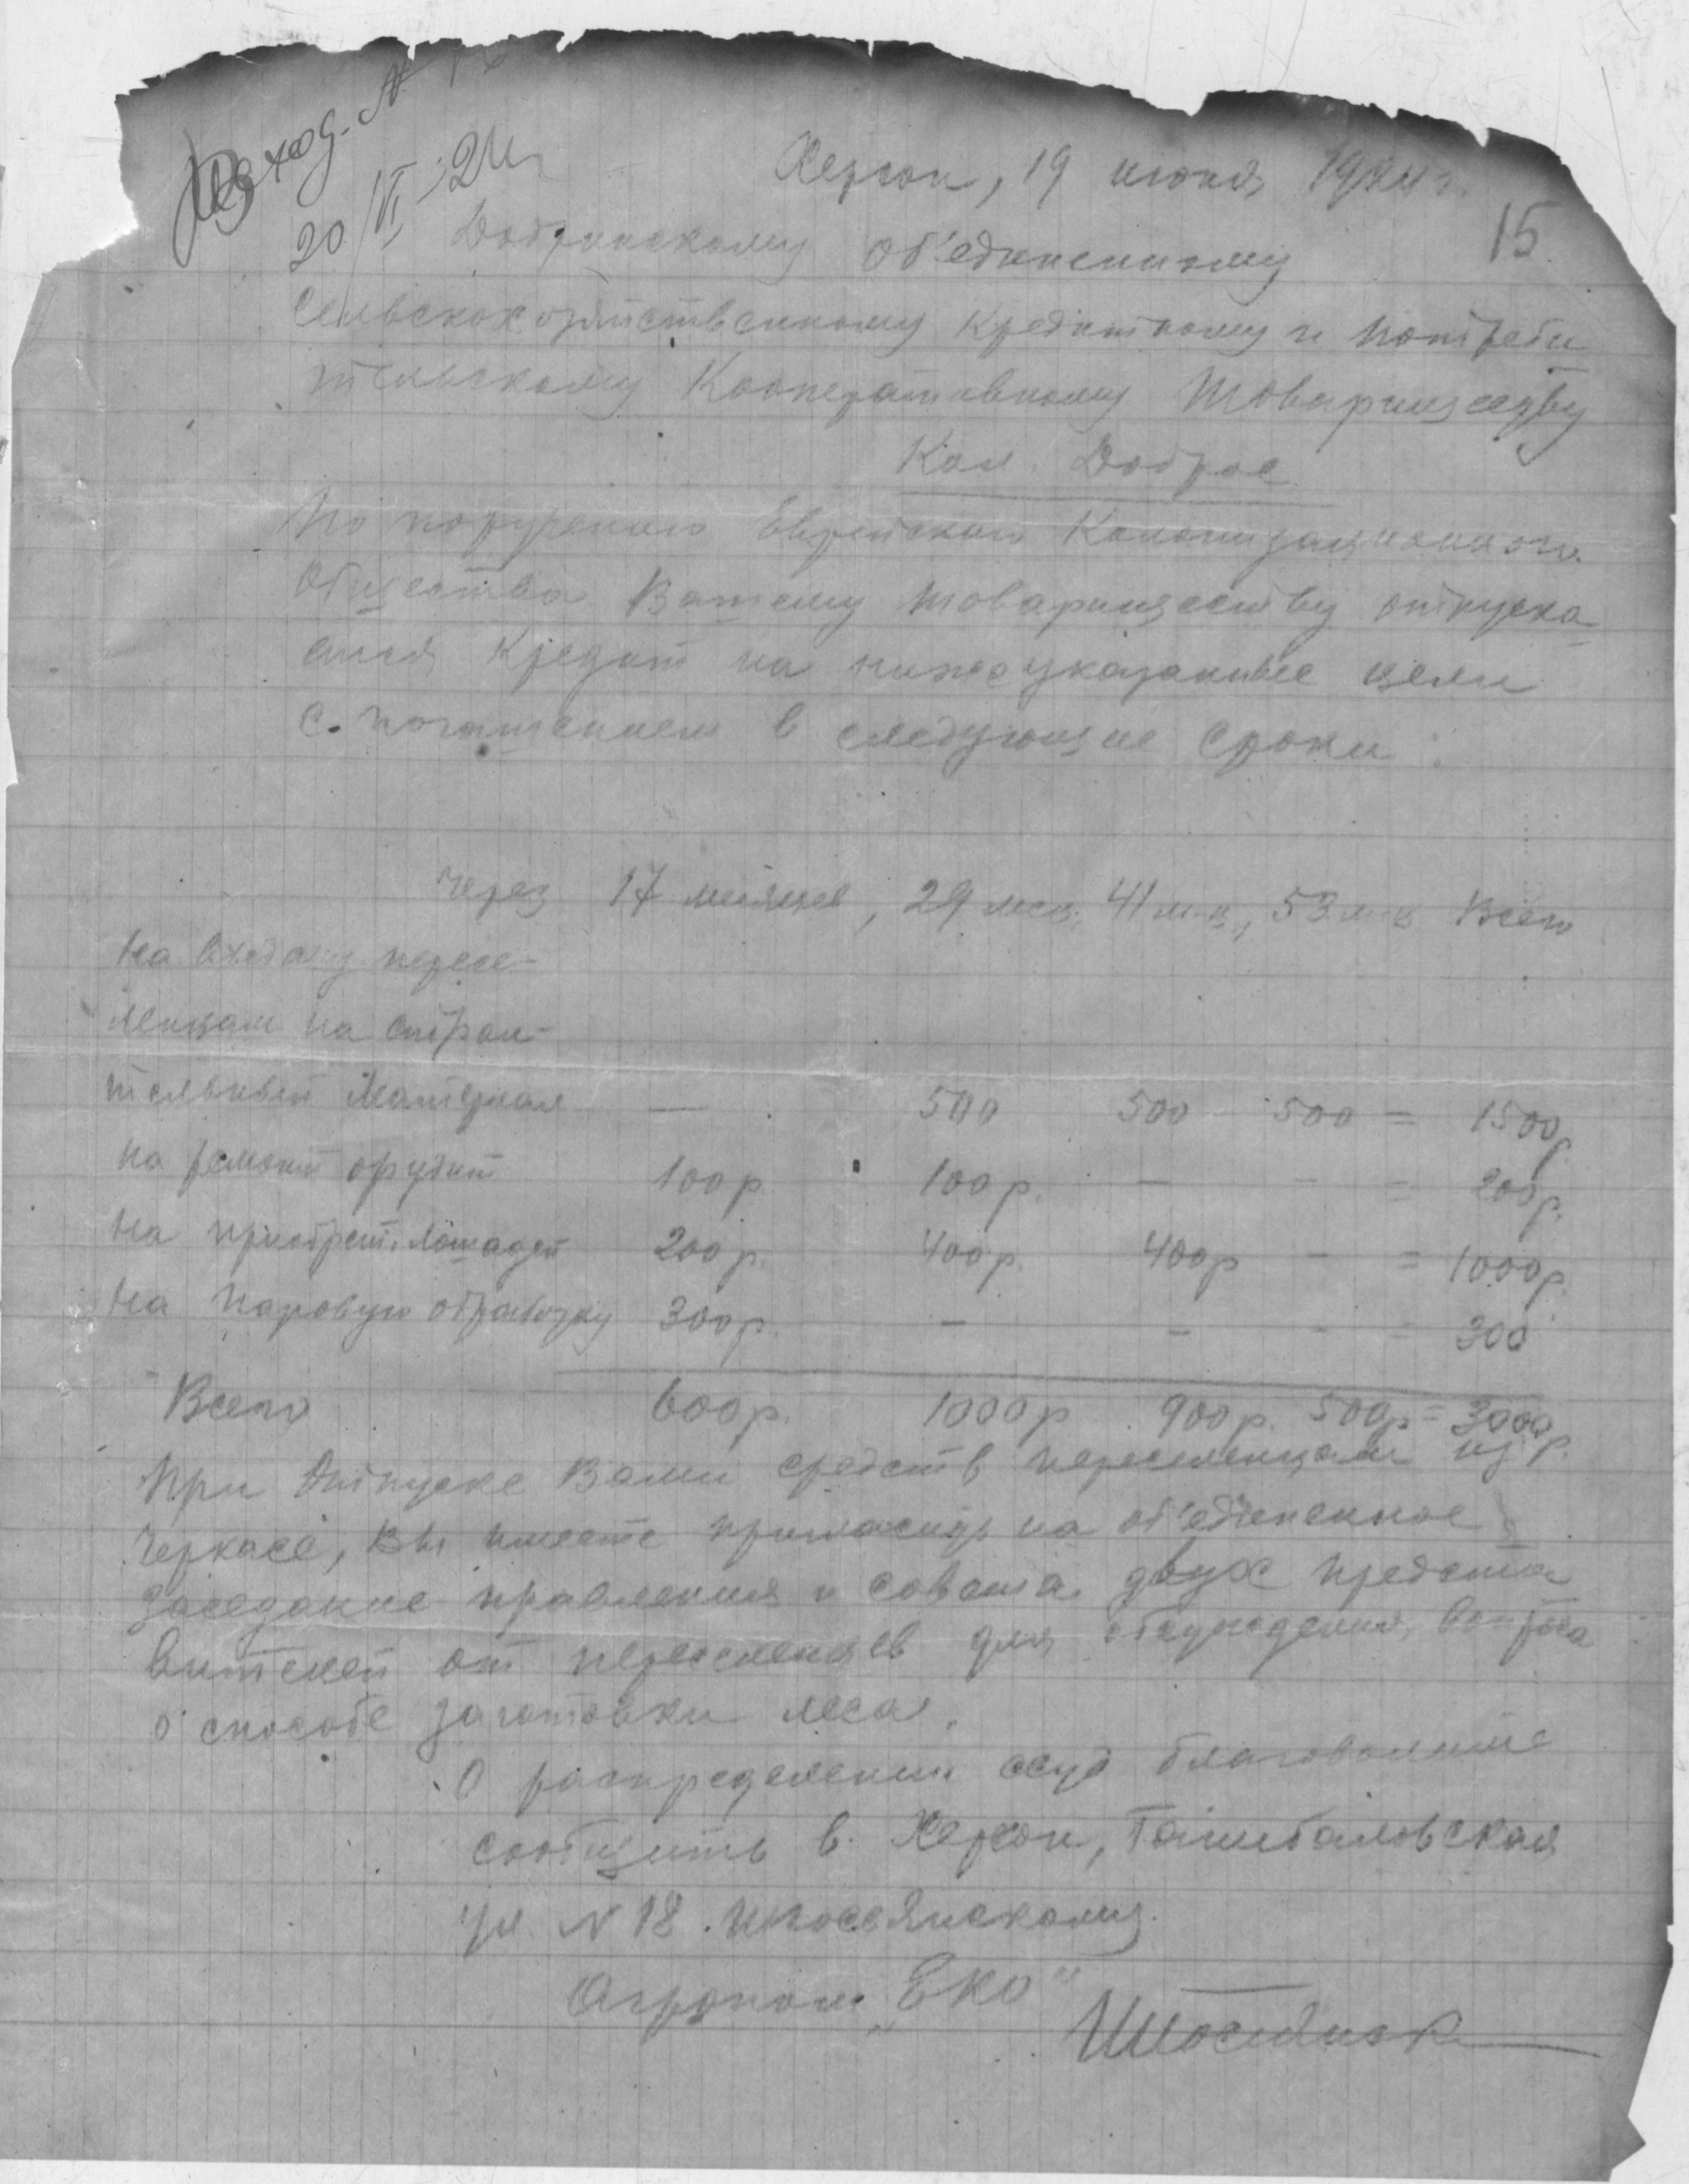 Входящ. №
20/VI 24 г.
Херсон, 19 июня 1924 г.
15
Добринскому об'единенному
Сельскохозяйственному Кредитному и потреби
тельскому Кооперативному Товариществу
Кол. Доброе
По поручению Еврейского Колонизационного
Общества Вашему товариществу отпуска
ется кредит на нижеуказанные цели
с погашением в следующие сроки:
через 17 месяцев, 29 мес, 41 м-ц, 53 м-ц Всего
на выдачу пересе-
ленцам на строи-
тельный материал — 500 500 500 = 1500 р
на ремонт орудий 100 р 100 р. — - = 200 р.
на приобрет. лошадей 200 р. 400 р. 400 р - = 1000 р.
на паровую обработку 300 р. - - - = 300
Всего 600 р. 1000 р 900 р. 500 р = 3000 р.
При отпуске Вами средств переселенцам из
Черкасс, Вы имеете пригласить на об'единенное
заседание правления и совета двух предста
вителей от переселенцев для обсуждения вопроса
о способе заготовки леса.
О распределении ссуд благоволите
сообщить в. Херсон,
ул. N 18.
Агроном „ЕКО"